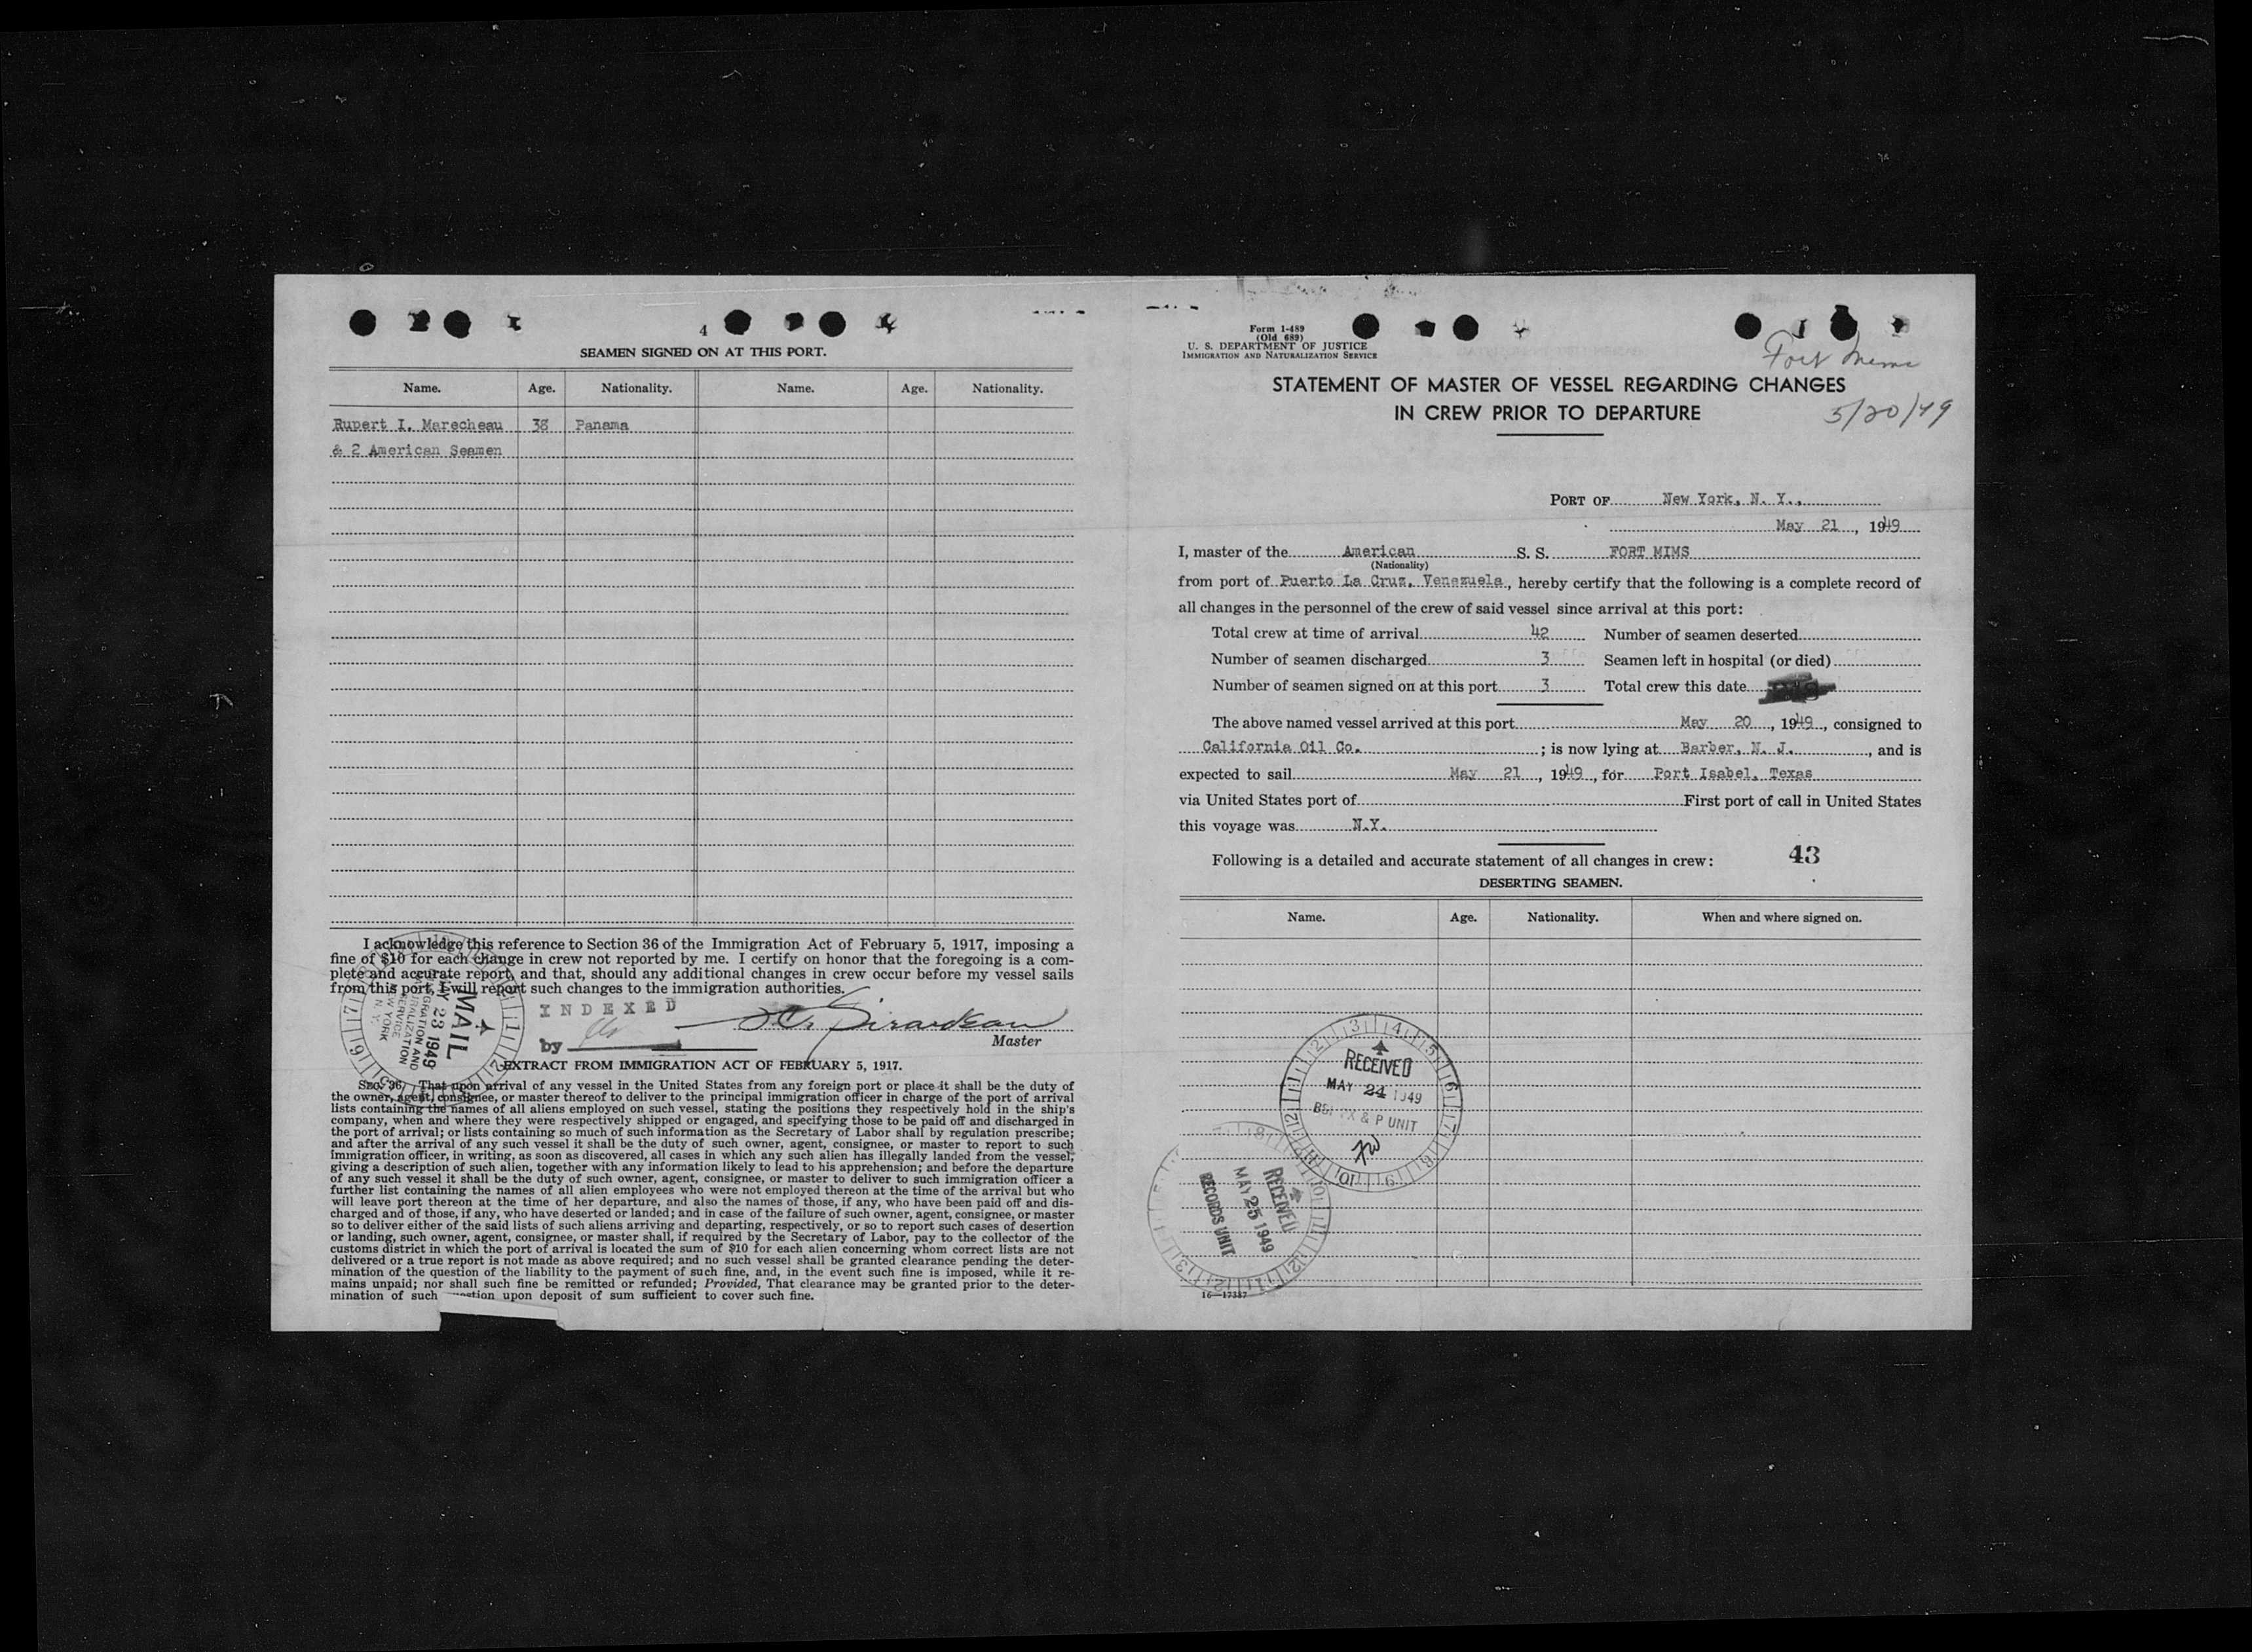 4
SEAMEN SIGNED ON AT THIS PORT.
Name. Age. Nationality. Name. Age. Nationality.
Rupert I. Marecheau 38 Panama
& 2 American Seamen
I acknowledge this reference to Section 36 of the Immigration Act of February 5, 1917, imposing a
fine of $10 for each change in crew not reported by me. I certify on honor that the foregoing is a com-
plete and accurate report, and that, should any additional changes in crew occur before my vessel sails
from this port, I will report such changes to the immigration authorities.
INDEXED
by
Girardeau
Master
MAIL
MAY 23 1949
IMMIGRATION AND
NATURALIZATION
SERVICE
NEW YORK
N. Y.
EXTRACT FROM IMMIGRATION ACT OF FEBRUARY 5, 1917.
SEC. 36. That upon arrival of any vessel in the United States from any foreign port or place it shall be the duty of
the owner, agent, consignee, or master thereof to deliver to the principal immigration officer in charge of the port of arrival
lists containing the names of all aliens employed on such vessel, stating the positions they respectively hold in the ship's
company, when and where they were respectively shipped or engaged, and specifying those to be paid off and discharged in
the port of arrival; or lists containing so much of such information as the Secretary of Labor shall by regulation prescribe;
and after the arrival of any such vessel it shall be the duty of such owner, agent, consignee, or master to report to such
immigration officer, in writing, as soon as discovered, all cases in which any such alien has illegally landed from the vessel,
giving a description of such alien, together with any information likely to lead to his apprehension; and before the departure
of any such vessel it shall be the duty of such owner, agent, consignee, or master to deliver to such immigration officer a
further list containing the names of all alien employees who were not employed thereon at the time of the arrival but who
will leave port thereon at the time of her departure, and also the names of those, if any, who have been paid off and dis-
charged and of those, if any, who have deserted or landed; and in case of the failure of such owner, agent, consignee, or master
so to deliver either of the said lists of such aliens arriving and departing, respectively, or so to report such cases of desertion
or landing, such owner, agent, consignee, or master shall, if required by the Secretary of Labor, pay to the collector of the
customs district in which the port of arrival is located the sum of $10 for each alien concerning whom correct lists are not
delivered or a true report is not made as above required; and no such vessel shall be granted clearance pending the deter-
mination of the question of the liability to the payment of such fine, and, in the event such fine is imposed, while it re-
mains unpaid; nor shall such fine be remitted or refunded; Provided, That clearance may be granted prior to the deter-
mination of such question upon deposit of sum sufficient to cover such fine.
Form 1-489
(Old 689)
U. S. DEPARTMENT OF JUSTICE
IMMIGRATION AND NATURALIZATION SERVICE
Fort Mims
STATEMENT OF MASTER OF VESSEL REGARDING CHANGES
IN CREW PRIOR TO DEPARTURE
5/20/49
PORT OF New York, N. Y.,
May 21, 1949
I, master of the American S. S. FORT MIMS
(Nationality)
from port of Puerto La Cruz, Venezuela, hereby certify that the following is a complete record of
all changes in the personnel of the crew of said vessel since arrival at this port:
Total crew at time of arrival 42 Number of seamen deserted
Number of seamen discharged 3 Seamen left in hospital (or died)
Number of seamen signed on at this port 3 Total crew this date
The above named vessel arrived at this port May 20, 1949, consigned to
California Oil Co. ; is now lying at Barber, N. J. , and is
expected to sail May 21, 1949, for Port Isabel, Texas
via United States port of First port of call in United States
this voyage was N.Y.
Following is a detailed and accurate statement of all changes in crew: 43
DESERTING SEAMEN.
Name. Age. Nationality. When and where signed on.
RECEIVED
MAY 24 1949
& P UNIT
RECEIVED
MAY 25 1949
RECORDS UNIT
16—17387